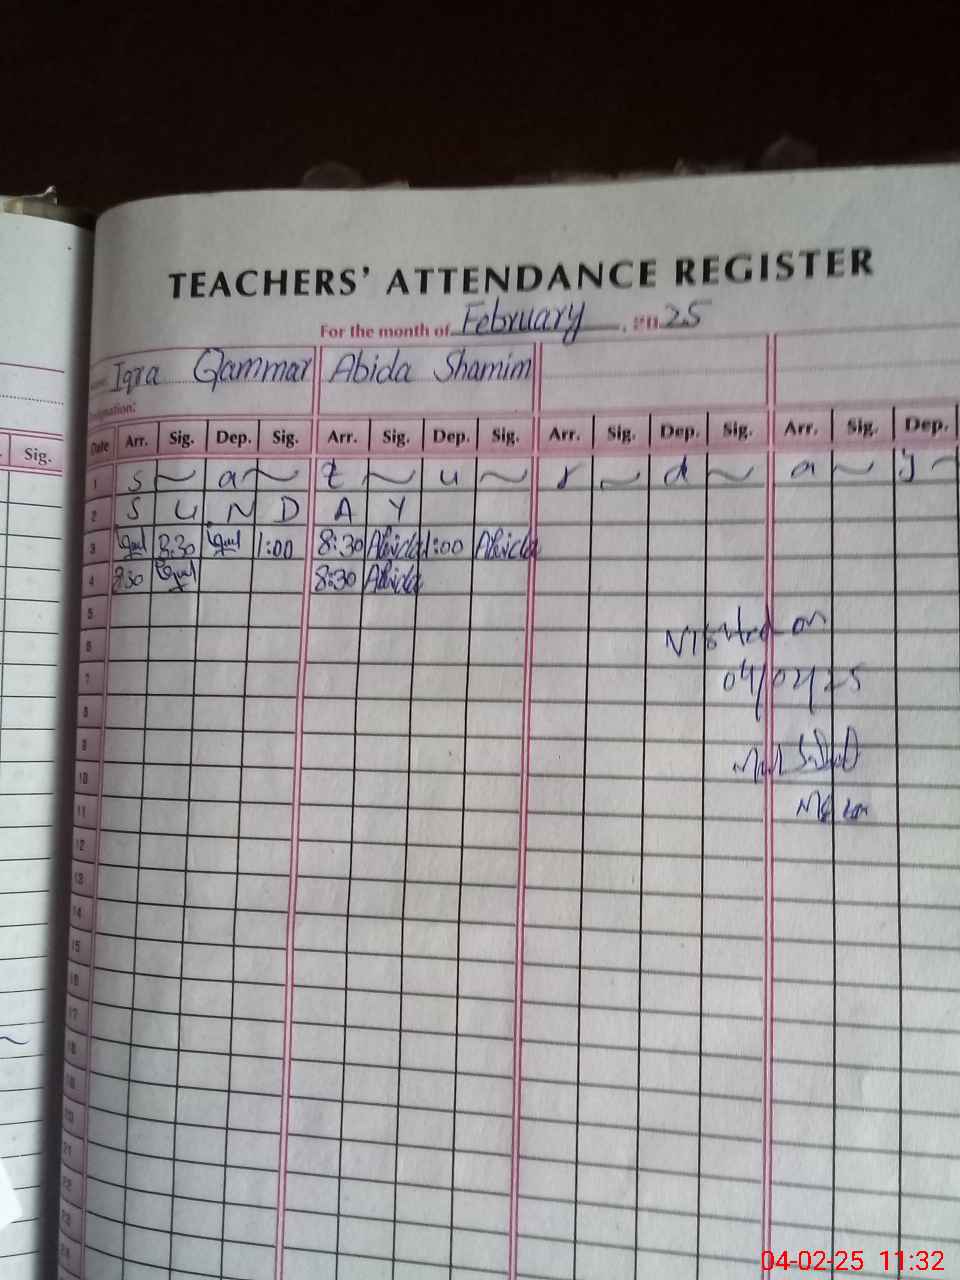 TEACHERS' ATTENDANCE REGISTER
For the month of February, 2025
Iqra Qammar Abida Shamim
Date Arr. Sig. Dep. Sig. Arr. Sig. Dep. Sig. Arr. Sig. Dep. Sig. Arr. Sig. Dep.
Sig.
1 S ~ a ~ t ~ u ~ r ~ d ~ a ~ y ~
2 S U N D A Y
3 8:30 1:00 8:30 Abida 1:00 Abida
4 8:30 8:30 Abida
5
6 Visited on
7 04/02/25
8
9
10
11
12
13
14
15
16
17
18
19
20
21
22
23
24
04-02-25 11:32